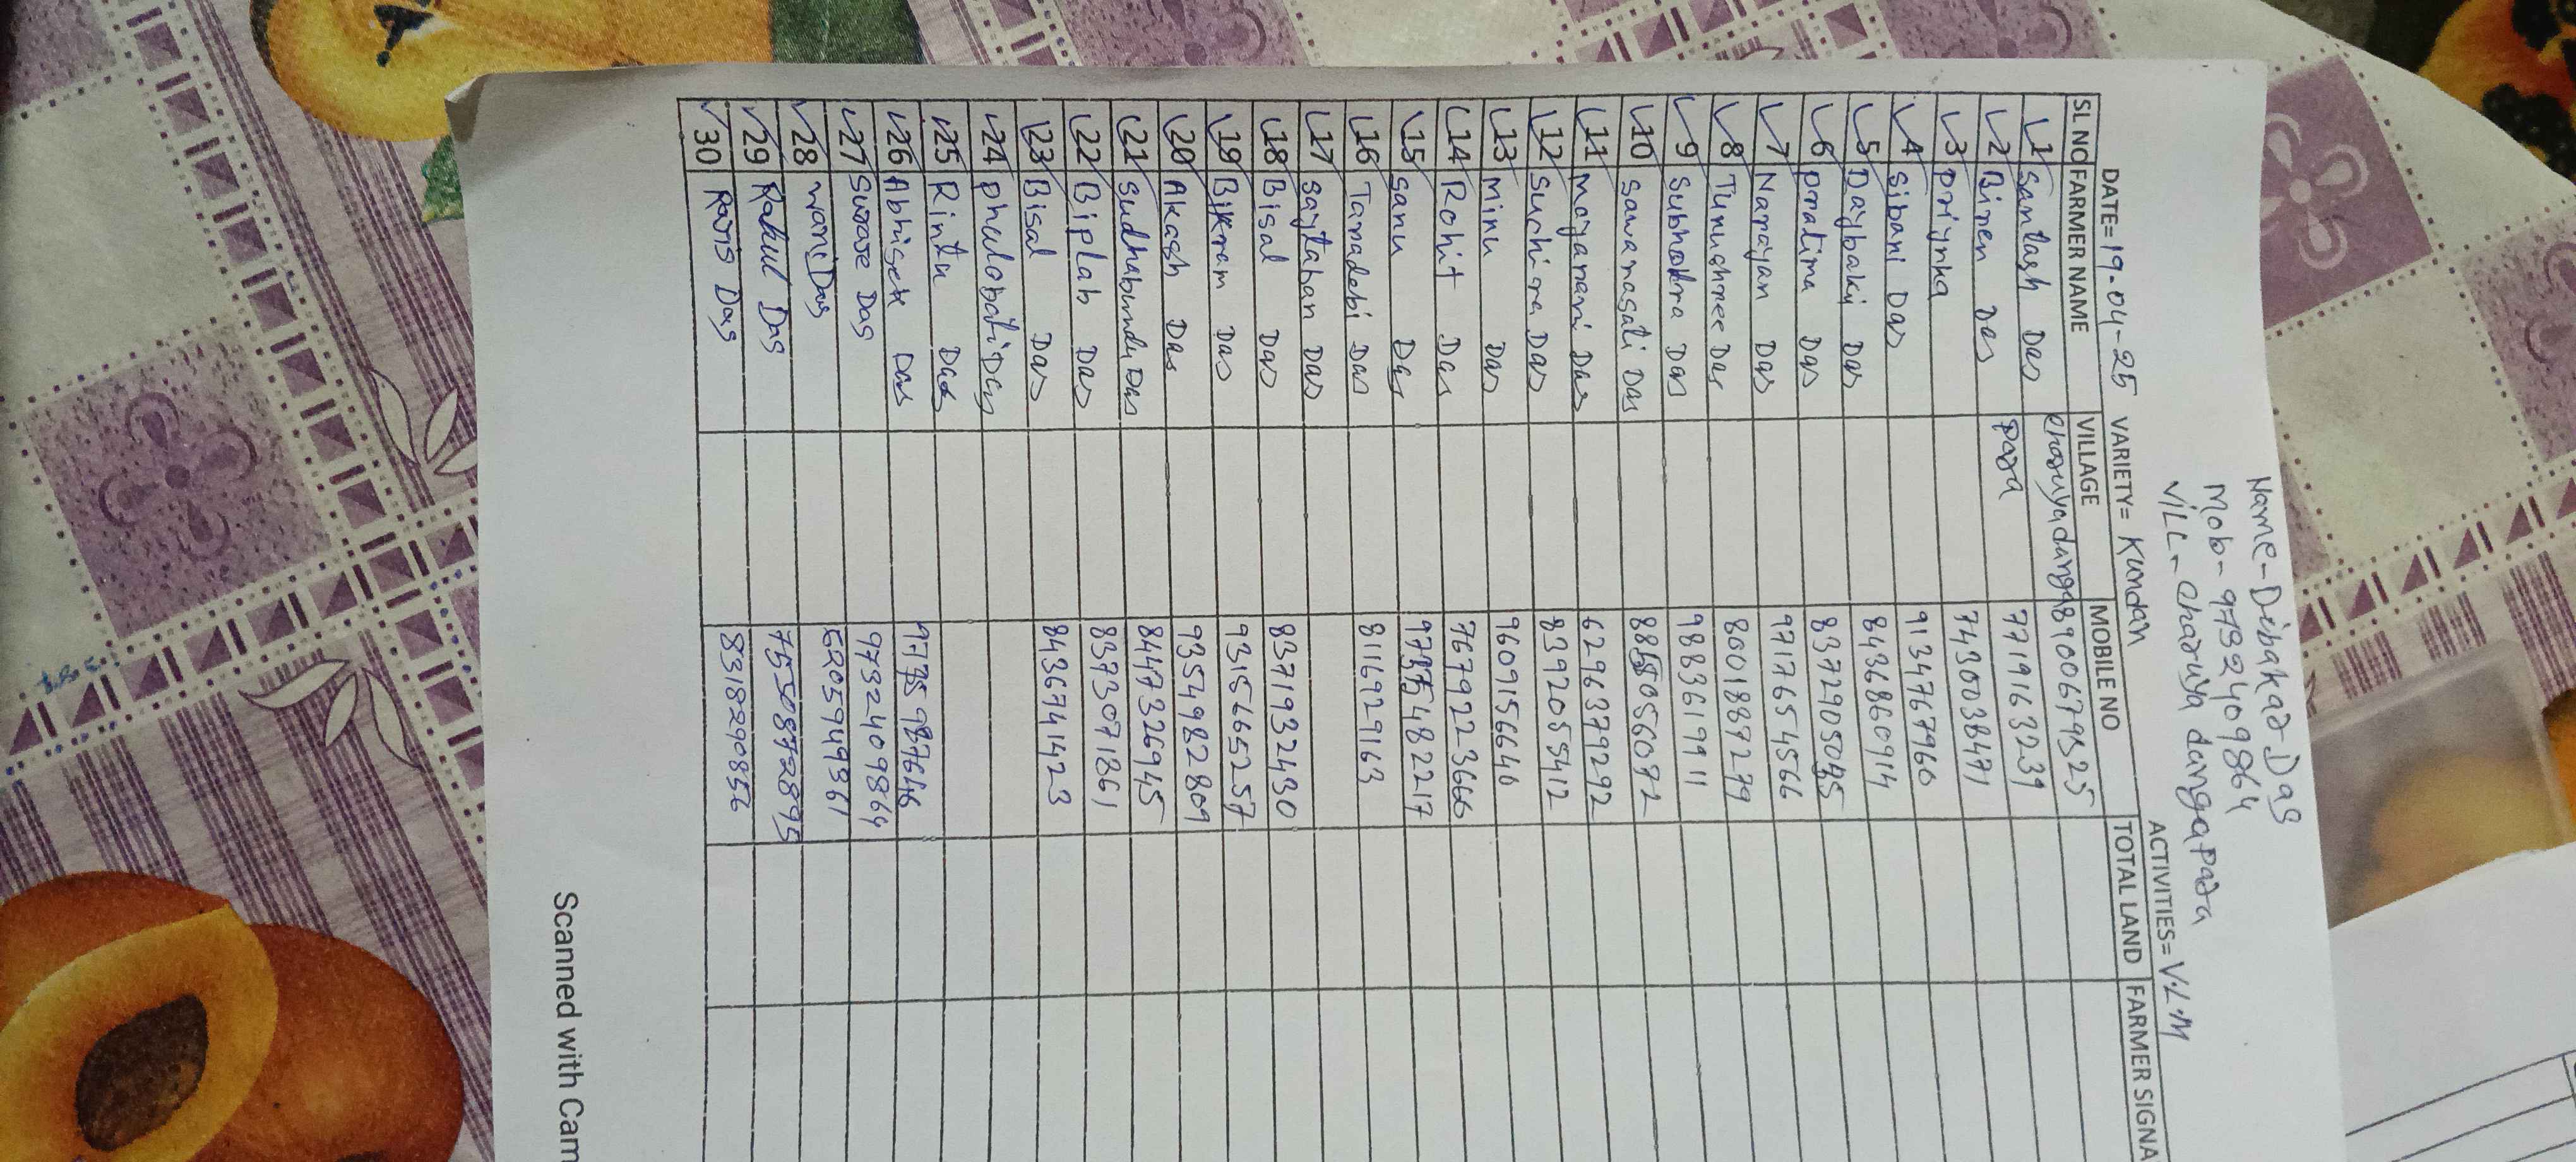 Name-Dibakar Das
Mob- 9732409864
VILL- charuya dangapara
DATE=19-04-25 VARIETY= Kundan ACTIVITIES= V.L.M
SL NO FARMER NAME VILLAGE MOBILE NO TOTAL LAND FARMER SIGNA
1 Santash Das charuyadanga 8900679525
2 Biren Das para 7719163239
3 priynka 7430038471
4 Sibani Das 9134767960
5 Daybaki Das 8436860914
6 pratima Das 83729050
7 Narayan Das 9717654566
8 Tunushree Das 8001889279
9 Subhokra Das 9883619911
10 Sawanasati Das
11 Moyarani Das 6296379292
12 Suchitra Das 8392055412
13 Minu Das 9609156640
14 Rohit Das 7679223666
15 Sanu Das
16 Taradebi Das 8116929163
17 Saytaban Das
18 Bisal Das 8371932430
19 Bikram Das 9315665257
20 Akash Das 9354982809
21 Sudhabundu Das 8447326945
22 Biplab Das 8373071861
23 Bisal Das 8436741423
24 phulobati Das
25 Rintu Das
26 Abhisek Das
27 Swarase Das 9732409864
28 wani Das
29 Rakul Das
30 Paris Das 8318290856
Scanned with Cam